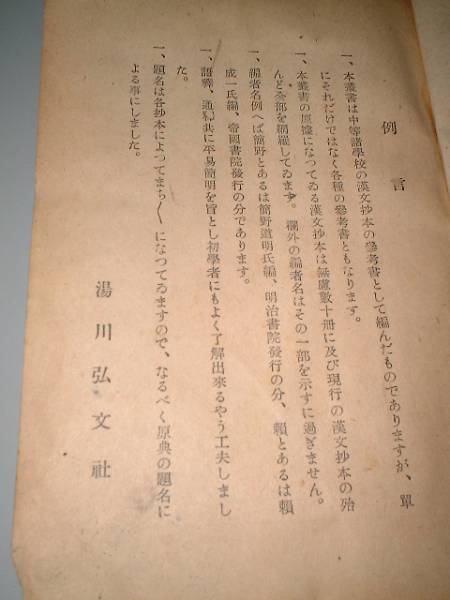 例言
一、本叢書は中等諸學校の漢文抄本の參考書として編んだものでありますが、單
にそれだけではなく各種の參考書ともなります。
一、本叢書の原據になつてゐる漢文抄本は無慮數十册に及び現行の漢文抄本の殆
んど全部を網羅してゐます。欄外の編者名はその一部を示すに過ぎません。
一、編者名例へば簡野とあるは簡野道明氏編、明治書院發行の分、賴とあるは賴
成一氏編、帝國書院發行の分であります。
一、語釋、通釋共に平易簡明を旨とし初學者にもよく了解出來るやう工夫しまし
た。
一、題名は各抄本によつてまち〱になつてゐますので、なるべく原典の題名に
よる事にしました。
湯川弘文社